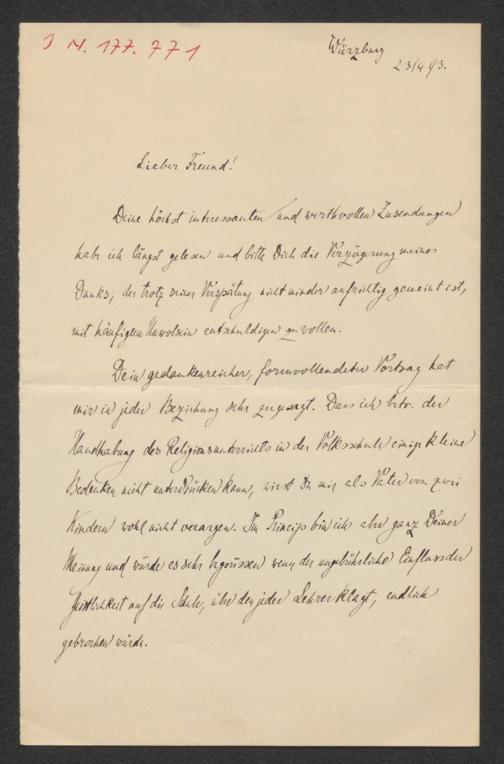 J N. 177.771
Würzburg
23/4 93.
Lieber Freund!
Deine höchst interessanten und werthvollen Zusendungen
habe ich längst gelesen und bitte Dich die Verzögerung meines
Danks, der trotz seiner Verspätung nicht minder aufrichtig gemeint ist,
mit häufigem Unwolsein entschuldigen zu wollen.
Dein gedankenreicher, formvollendeter Vortrag hat
mir in jeder Beziehung sehr zugesagt. Dass ich betr. der
Handhabung des Religionsunterrichts in der Volksschule einige kleine
Bedenken nicht unterdrücken kann, wirst Du mir als Vater von zwei
Kindern wohl nicht verargen. Im Princip bin ich aber ganz Deiner
Meinung und würde es sehr begrüssen wenn der ungebührliche Einfluss der
Geistlichkeit auf die Schule, über den jeder Lehrer klagt, endlich
gebrochen würde.